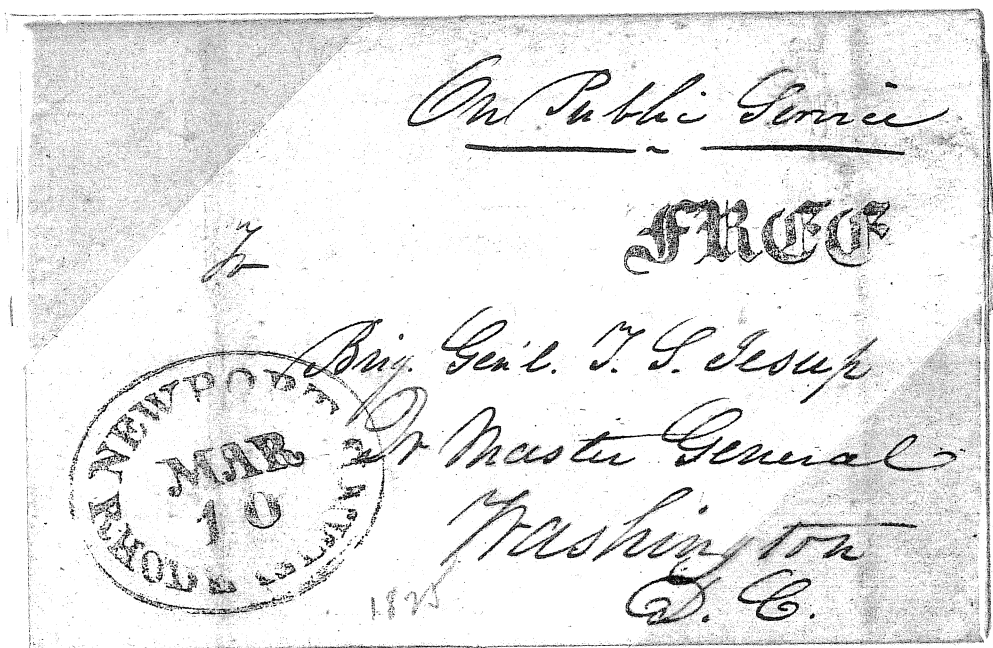 On Public Service
FREE
To
Brig. Gen'l. T. S. Jesup
Qr Master General
Washington
D. C.
NEWPORT
MAR
10
1825